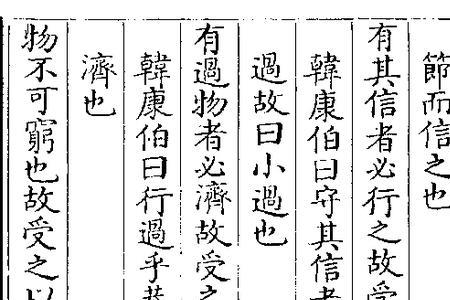 節而信之也
有其信者必行之故受
韓康伯曰守其信者
過故曰小過也
有過物者必濟故受之
韓康伯曰行過乎恭
濟也
物不可窮也故受之以